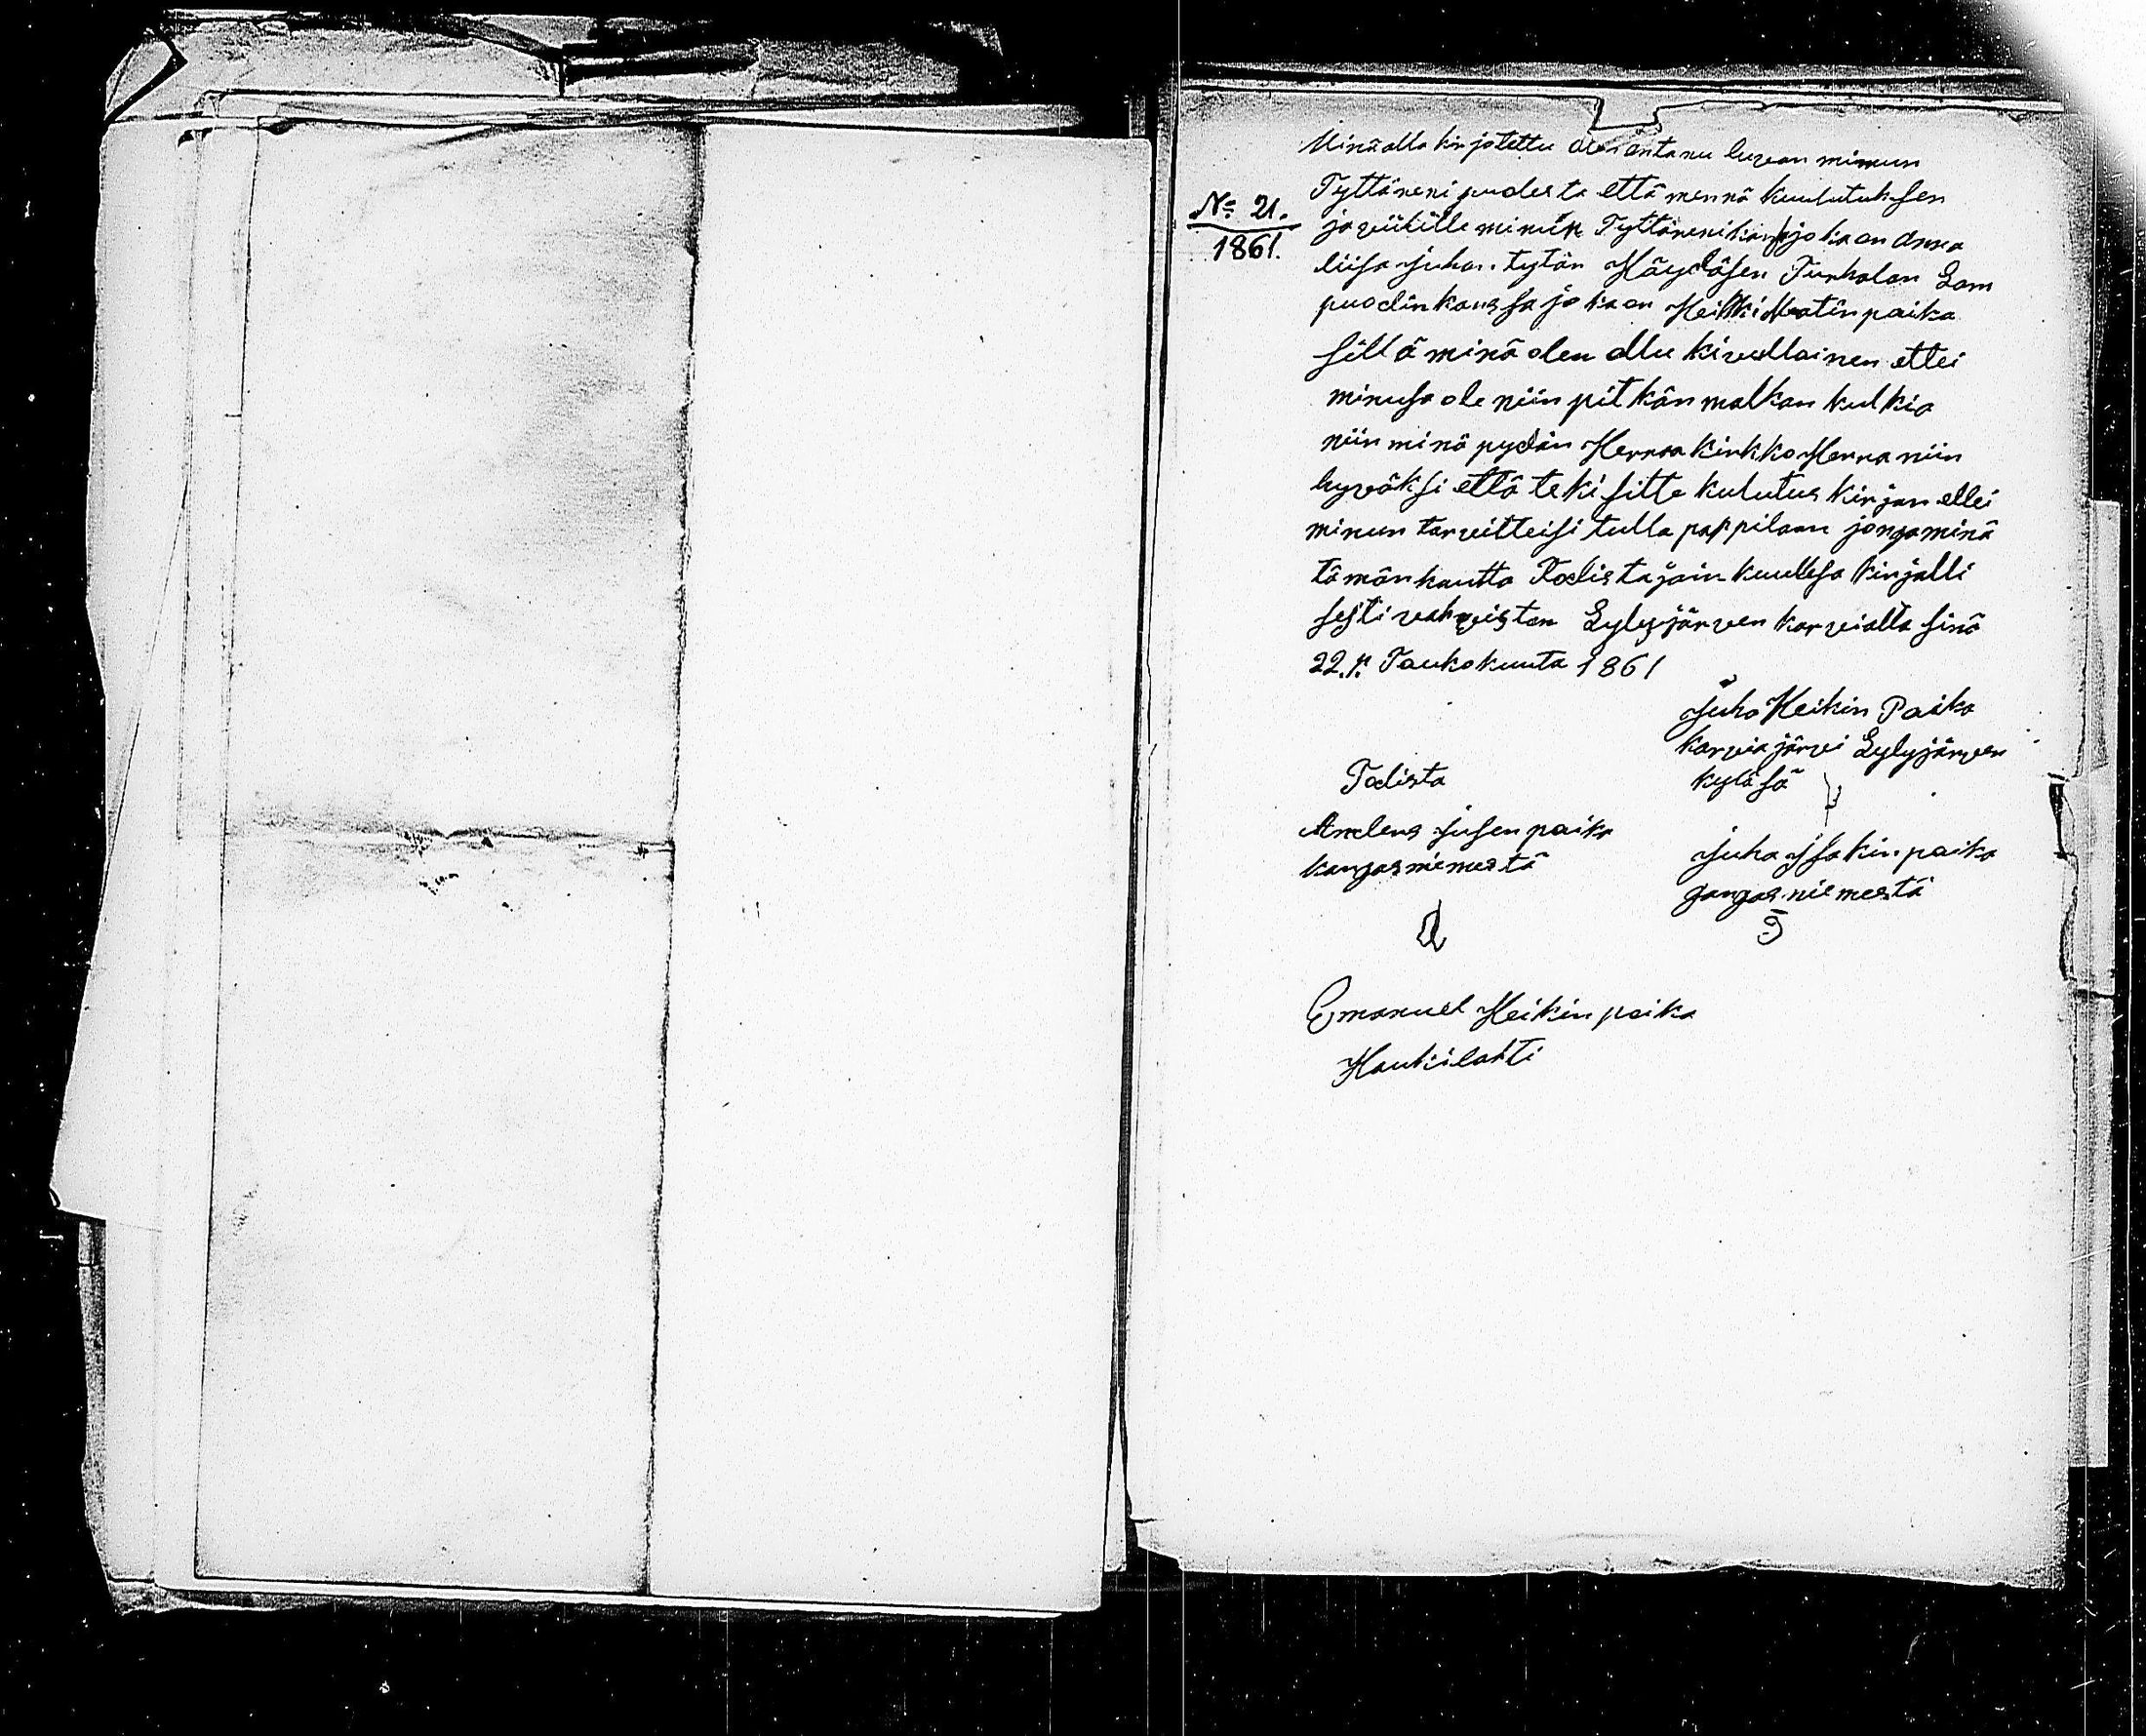 Minä alla kirjotettu olen antanu luvan minun
Tyttäreni puolesta että mennä kuulutuksen
No 21.
1861.
ja viikille minun Tyttäreni joka on Anna
liisa Juhan tytön Häyläsen Turkalan Lam
puodin kanssa joka on Heikki Matin paika
sillä minä olen ollu kivullainen ettei
minusa ole niin pitkän malkan kulkia
niin minä pydän Herraa kirkko Herra niin
hyväksi että teki sitte kulutus kirjan ettei
minun tarvitteisi tulla pappilaan jonga minä
tämän kautta Todistajain kuullesa kirjalli
sesti vahvistan Lylyjärven karvialla sinä
22. p: Taukokuuta 1861
Juho Heikin Paika
karvia järvi Lylyjärven
kyläsä
Todista
Anders jusen paika
kangasniemestä
Juha Isakin paika
gangasniemestä
Emanuel Heikin peika
Haukilahti